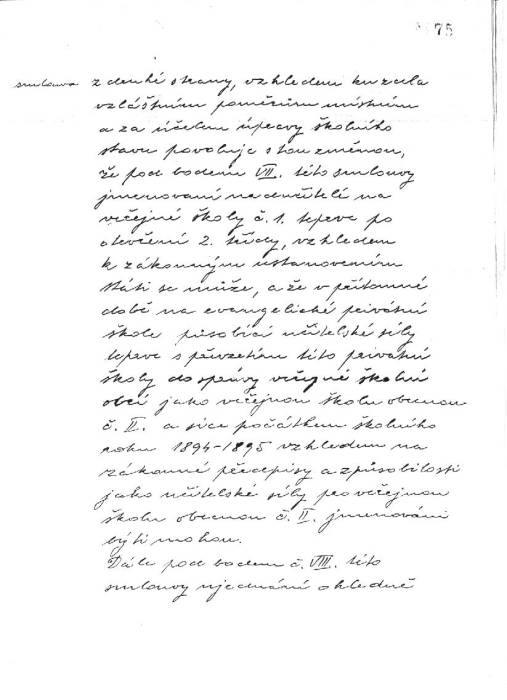 75
smlouva z druhé strany, vzhledem ku zcela
vzláštním poměrům místním
a za účelem úpravy školního
stavu povoluje s tou změnou,
že pod bodem VII. této smlouvy
jmenovaní nadučitelé na
veřejné školy č. 1. teprve po
otevření 2. třídy, vzhledem
k zákonným ustanovením
státi se může, a že v přítomné
době na evangelické privátní
škole působící učitelské síly
teprve s převzetím této privátní
školy do správy veřejné školní
obcí jako veřejnou školu obecnou
č. II. a sice počátkem školního
roku 1894-1895 vzhledem na
zákonné předpisy a způsobilosti
jako učitelské síly pro veřejnou
školu obecnou č. II. jmenováni
býti mohou.
Dále pod bodem č. VIII. této
smlouvy ujednání ohledně